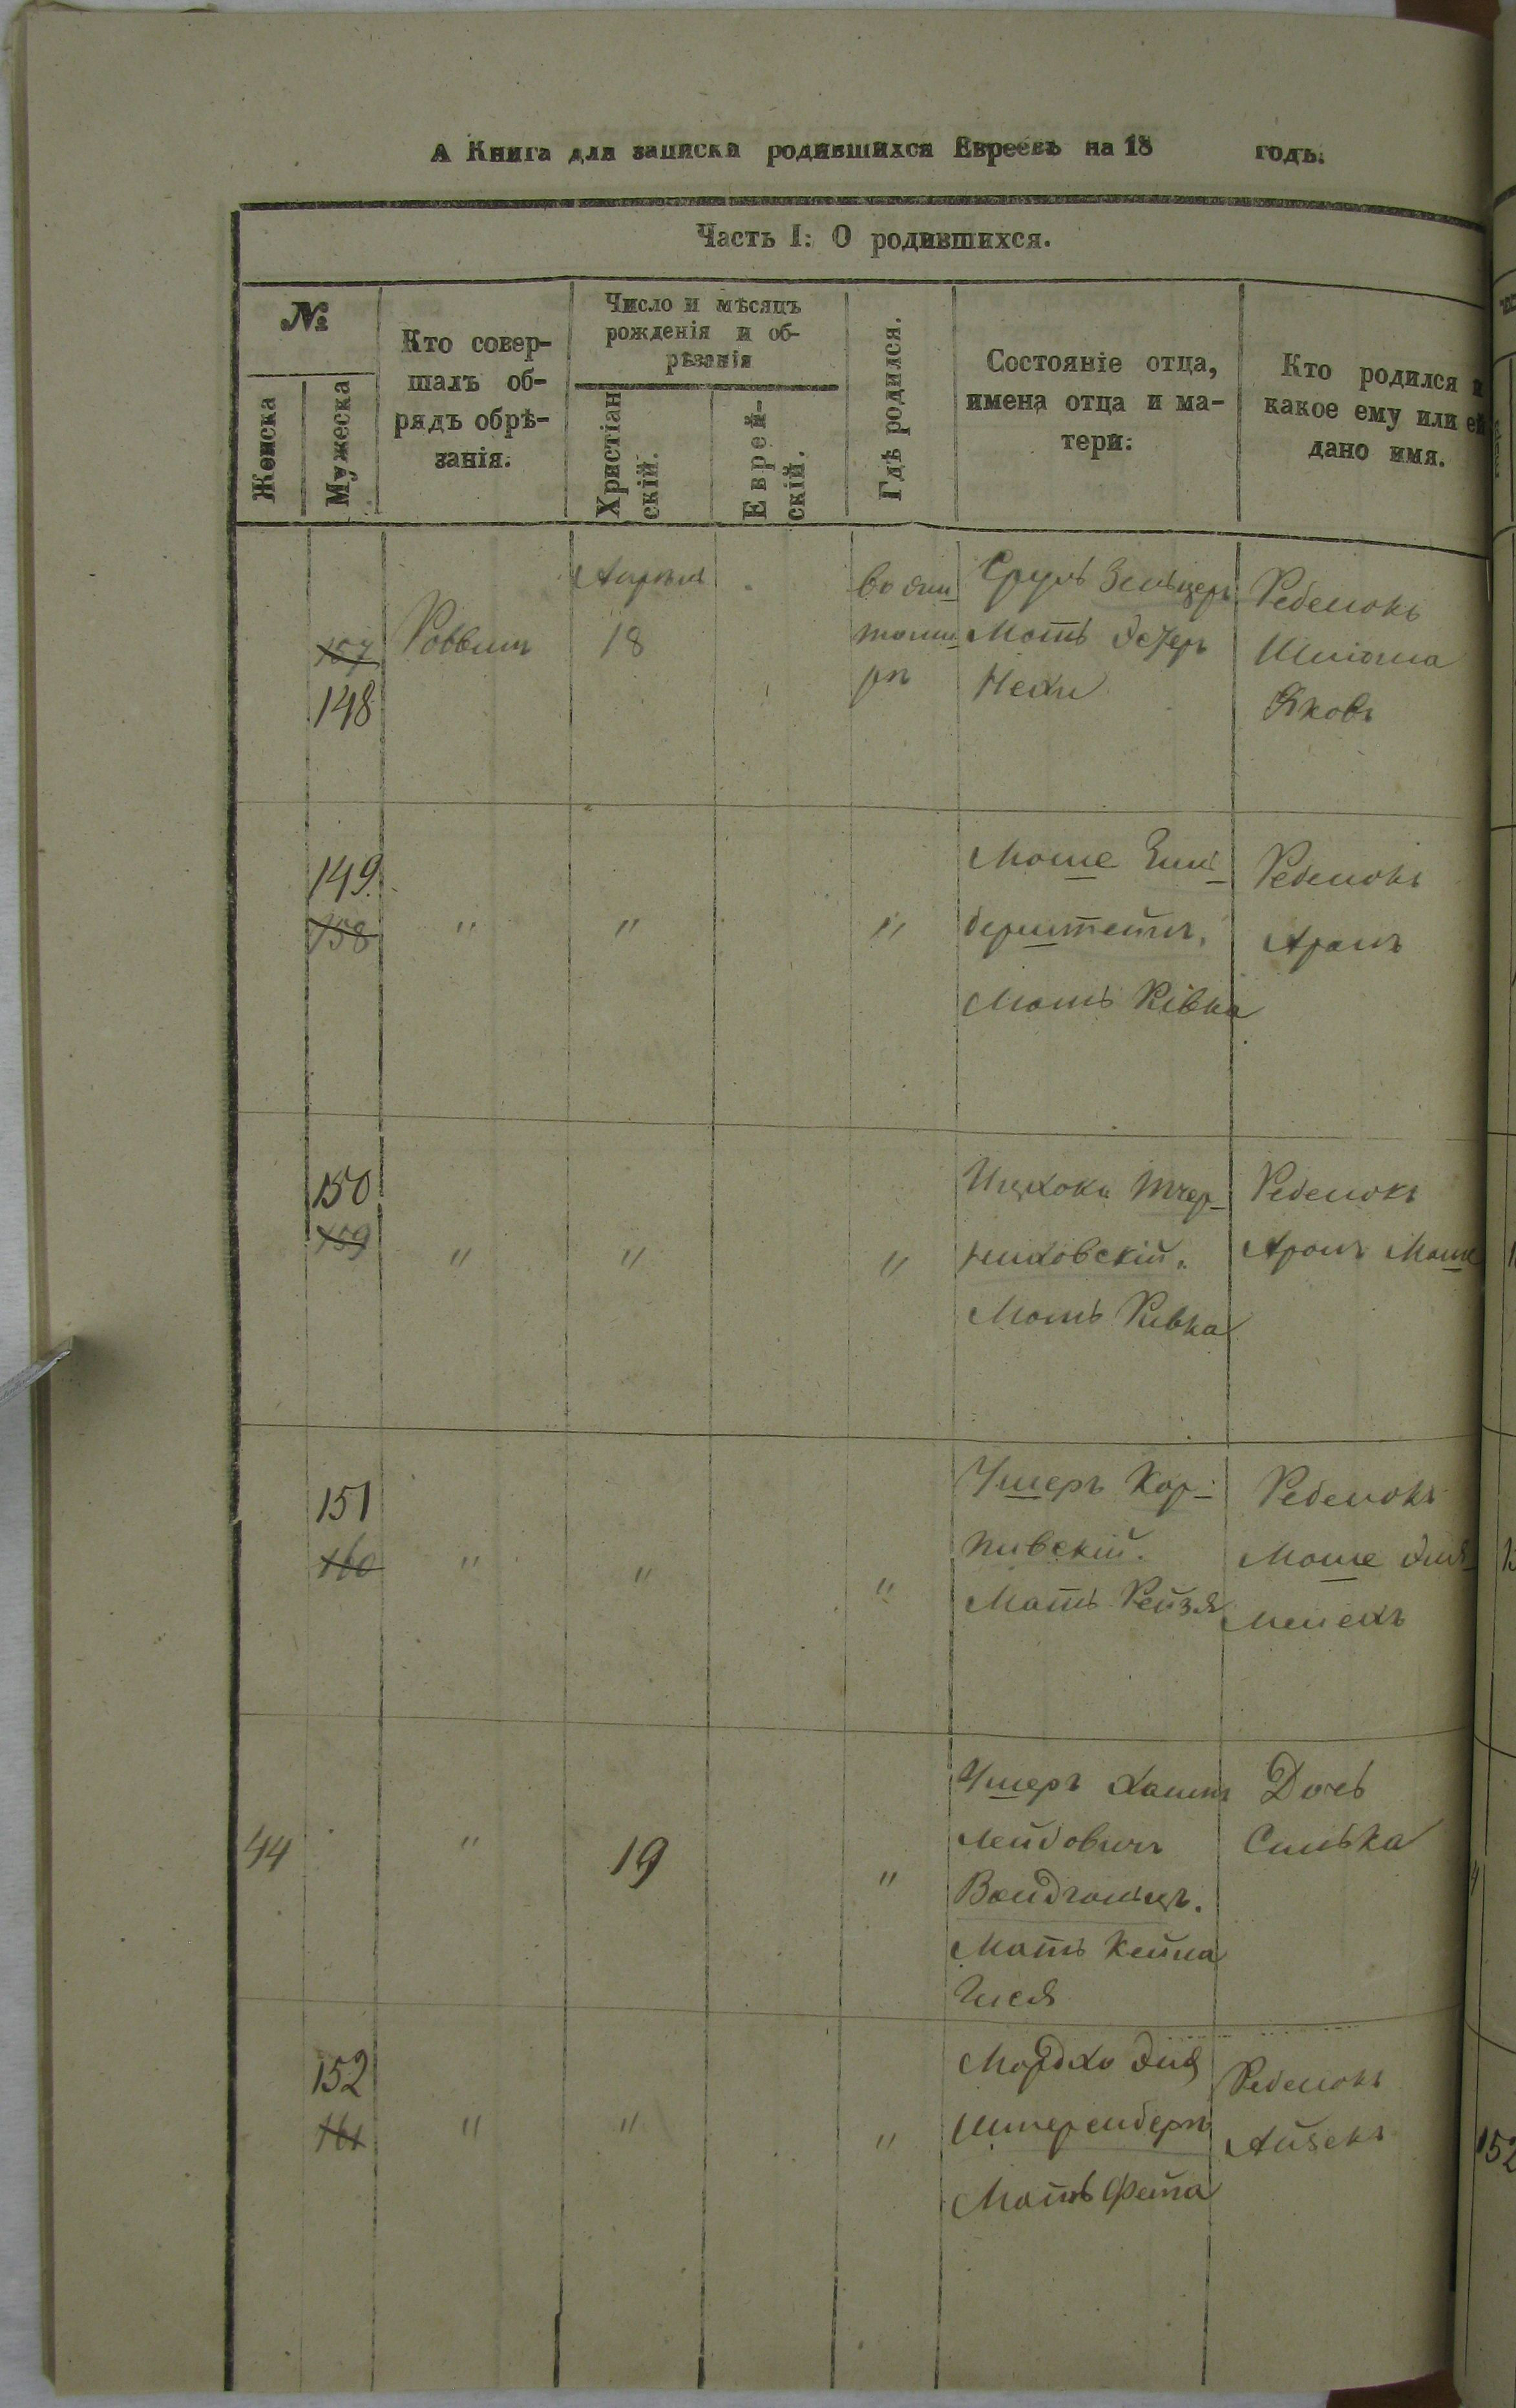 А Книга для записки родившихся Евреевъ на 18 годъ.
Часть I: О родившихся.
№
Женска
Мужеска
Кто совер-
шалъ об-
рядъ обрѣ-
занія.
Число и мѣсяцъ
рожденія и об-
рѣзанія
Христіан
скій.
Еврей-
скій.
Гдѣ родился.
Состояніе отца,
имена отца и ма-
тери.
Кто родился и
какое ему или ей
дано имя.
157
148
Раввинъ
Апрѣля
18
во жи
томи
рѣ
Сруль Зельцеръ
Мать Эстеръ
Нехи
Ребенокъ
Шліома
Яковъ
149.
158
"
"
"
Моше
берштейнъ.
Мать Рівка
Ребенокъ
Аронъ
150
159
"
"
"
Ицхокъ Тчер-
ниховскій.
Мать Ривка
Ребенокъ
Аронъ Моше
151
160
"
"
"
Ушеръ Кор-
пивскій.
Мать Рейзя
Ребенокъ
Моше Эли
мелехъ
44
"
19
"
Ушеръ Хаимъ
Лейбовичъ
Мать Кейла
Гися
Дочь
Симька
152
161
"
"
"
Мордхо Эля
Штеренберъ
Мать Фейга
Ребенокъ
Айзекъ
152